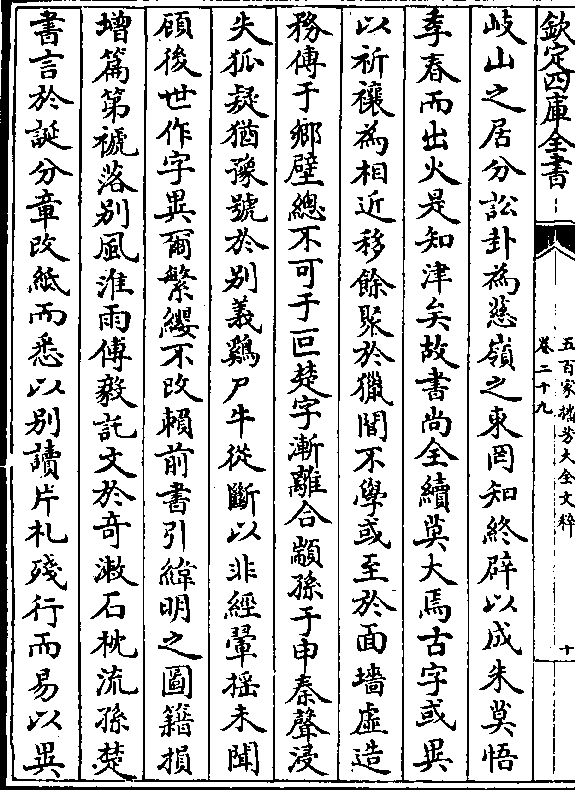 欽定四庫全書
五百家播芳大全文粹
卷二十九
十
岐山之居分訟卦為慈嶺之東罔知終辟以成朱莫悟
季春而出火是知津矣故書尚全續莫大焉古字或異
以祈禳為相近移餘聚於獵閒不學或至於面墻虛造
務傳于鄉壁總不可于叵楚字漸離合顓孫于申秦聲浸
失狐疑猶豫號於别義鷄尸牛從斷以非經翬揺未聞
頋後世作字異爾繁纓不改賴前書引緯明之圖籍損
增篇第褫落别風淮雨傅毅託文於竒潄石枕流孫楚
書言於誕分章改紙而悉以别讀片札殘行而易以異